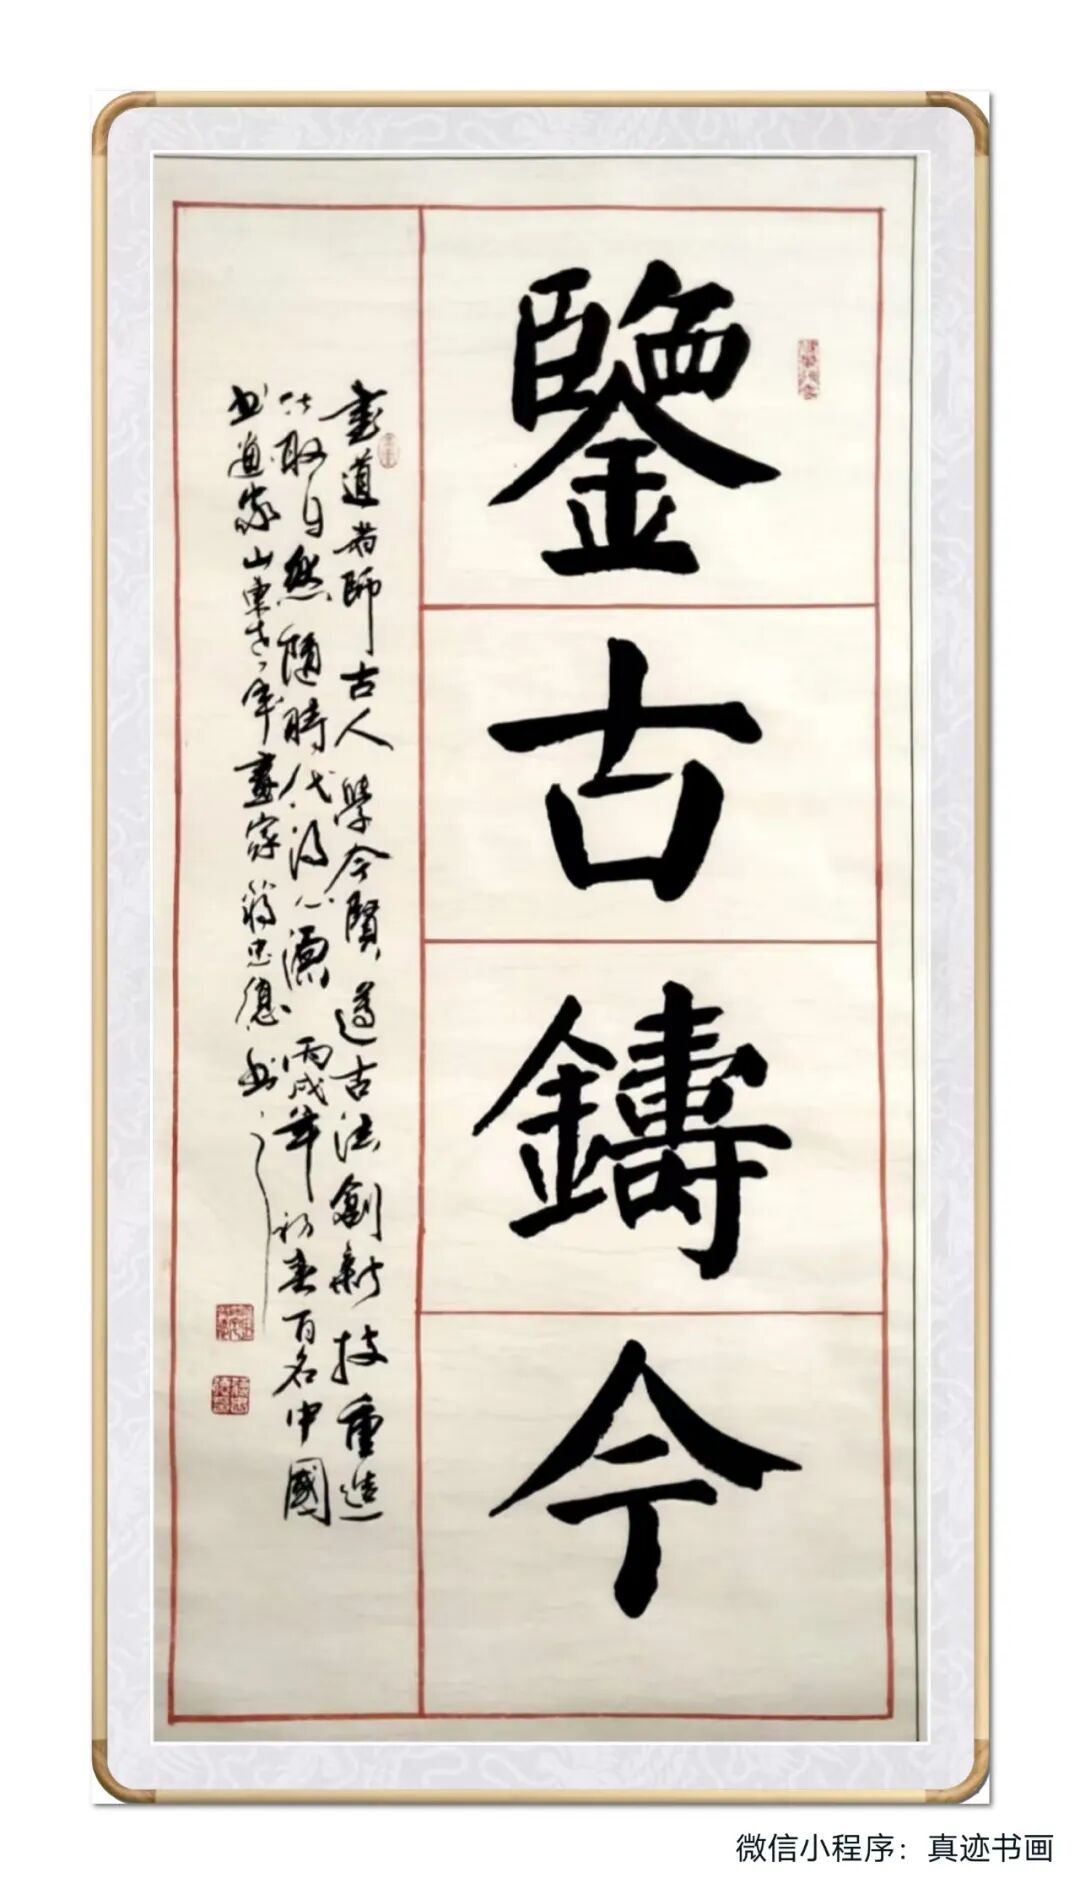 鑒
古
鑄
今
書道者師古人學今賢遵古法創新技重造
化取自然隨時代得心源 丙戌年初春百名中國
書畫家山東老年畫家蔣忠德書
微信小程序：真迹书画